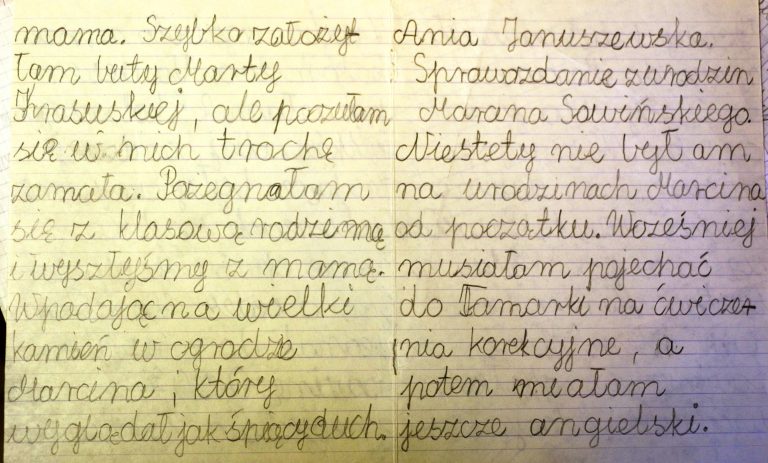 mama. Szybko założyt
łam buty Marty
Krasuskiej, ale poczułam
się w nich trochę
zamała. Pożegnałam
się z klasową rodzimą
i wyszłyśmy z mamą.
Wpadając na wielki
kamień w ogrodze
Marcina, który
wyglądał jak śpiący duch.
Ania Januszewska.
Sprawozdanie z urodzin
Marcina Sowińskiego.
Niestety nie był am
na urodzinach Marcina
od początku. Wcześniej
musiałam pojechać
do Tamarki na ćwicze-
nia korekcyjne, a
potem miałam
jeszcze angielski.